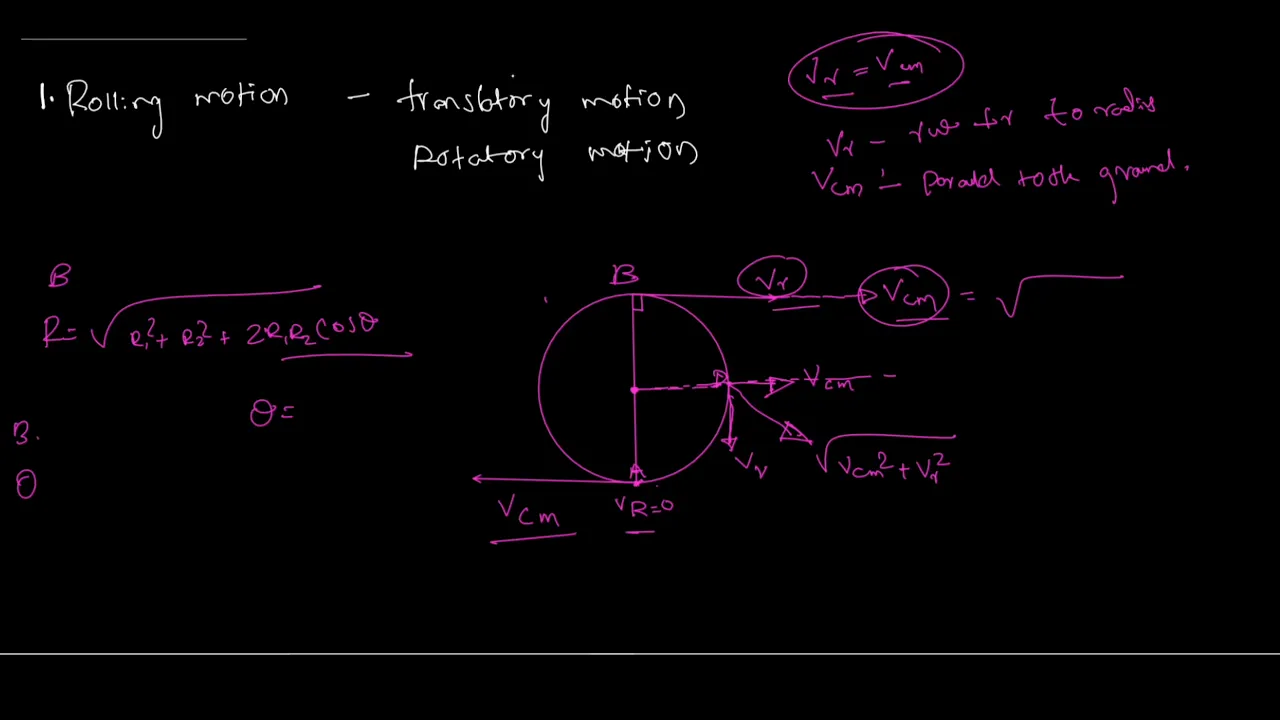 1. Rolling motion - translatory motion
Rotatory motion
Vr = Vcm
Vr - for to radis
Vcm :- ground.
B
R = √R₁² + R₂² + 2R₁R₂ Cosθ
θ =
B.
θ
B
Vr Vcm = √
Vcm
Vr √Vcm² + Vr²
Vcm VR=0